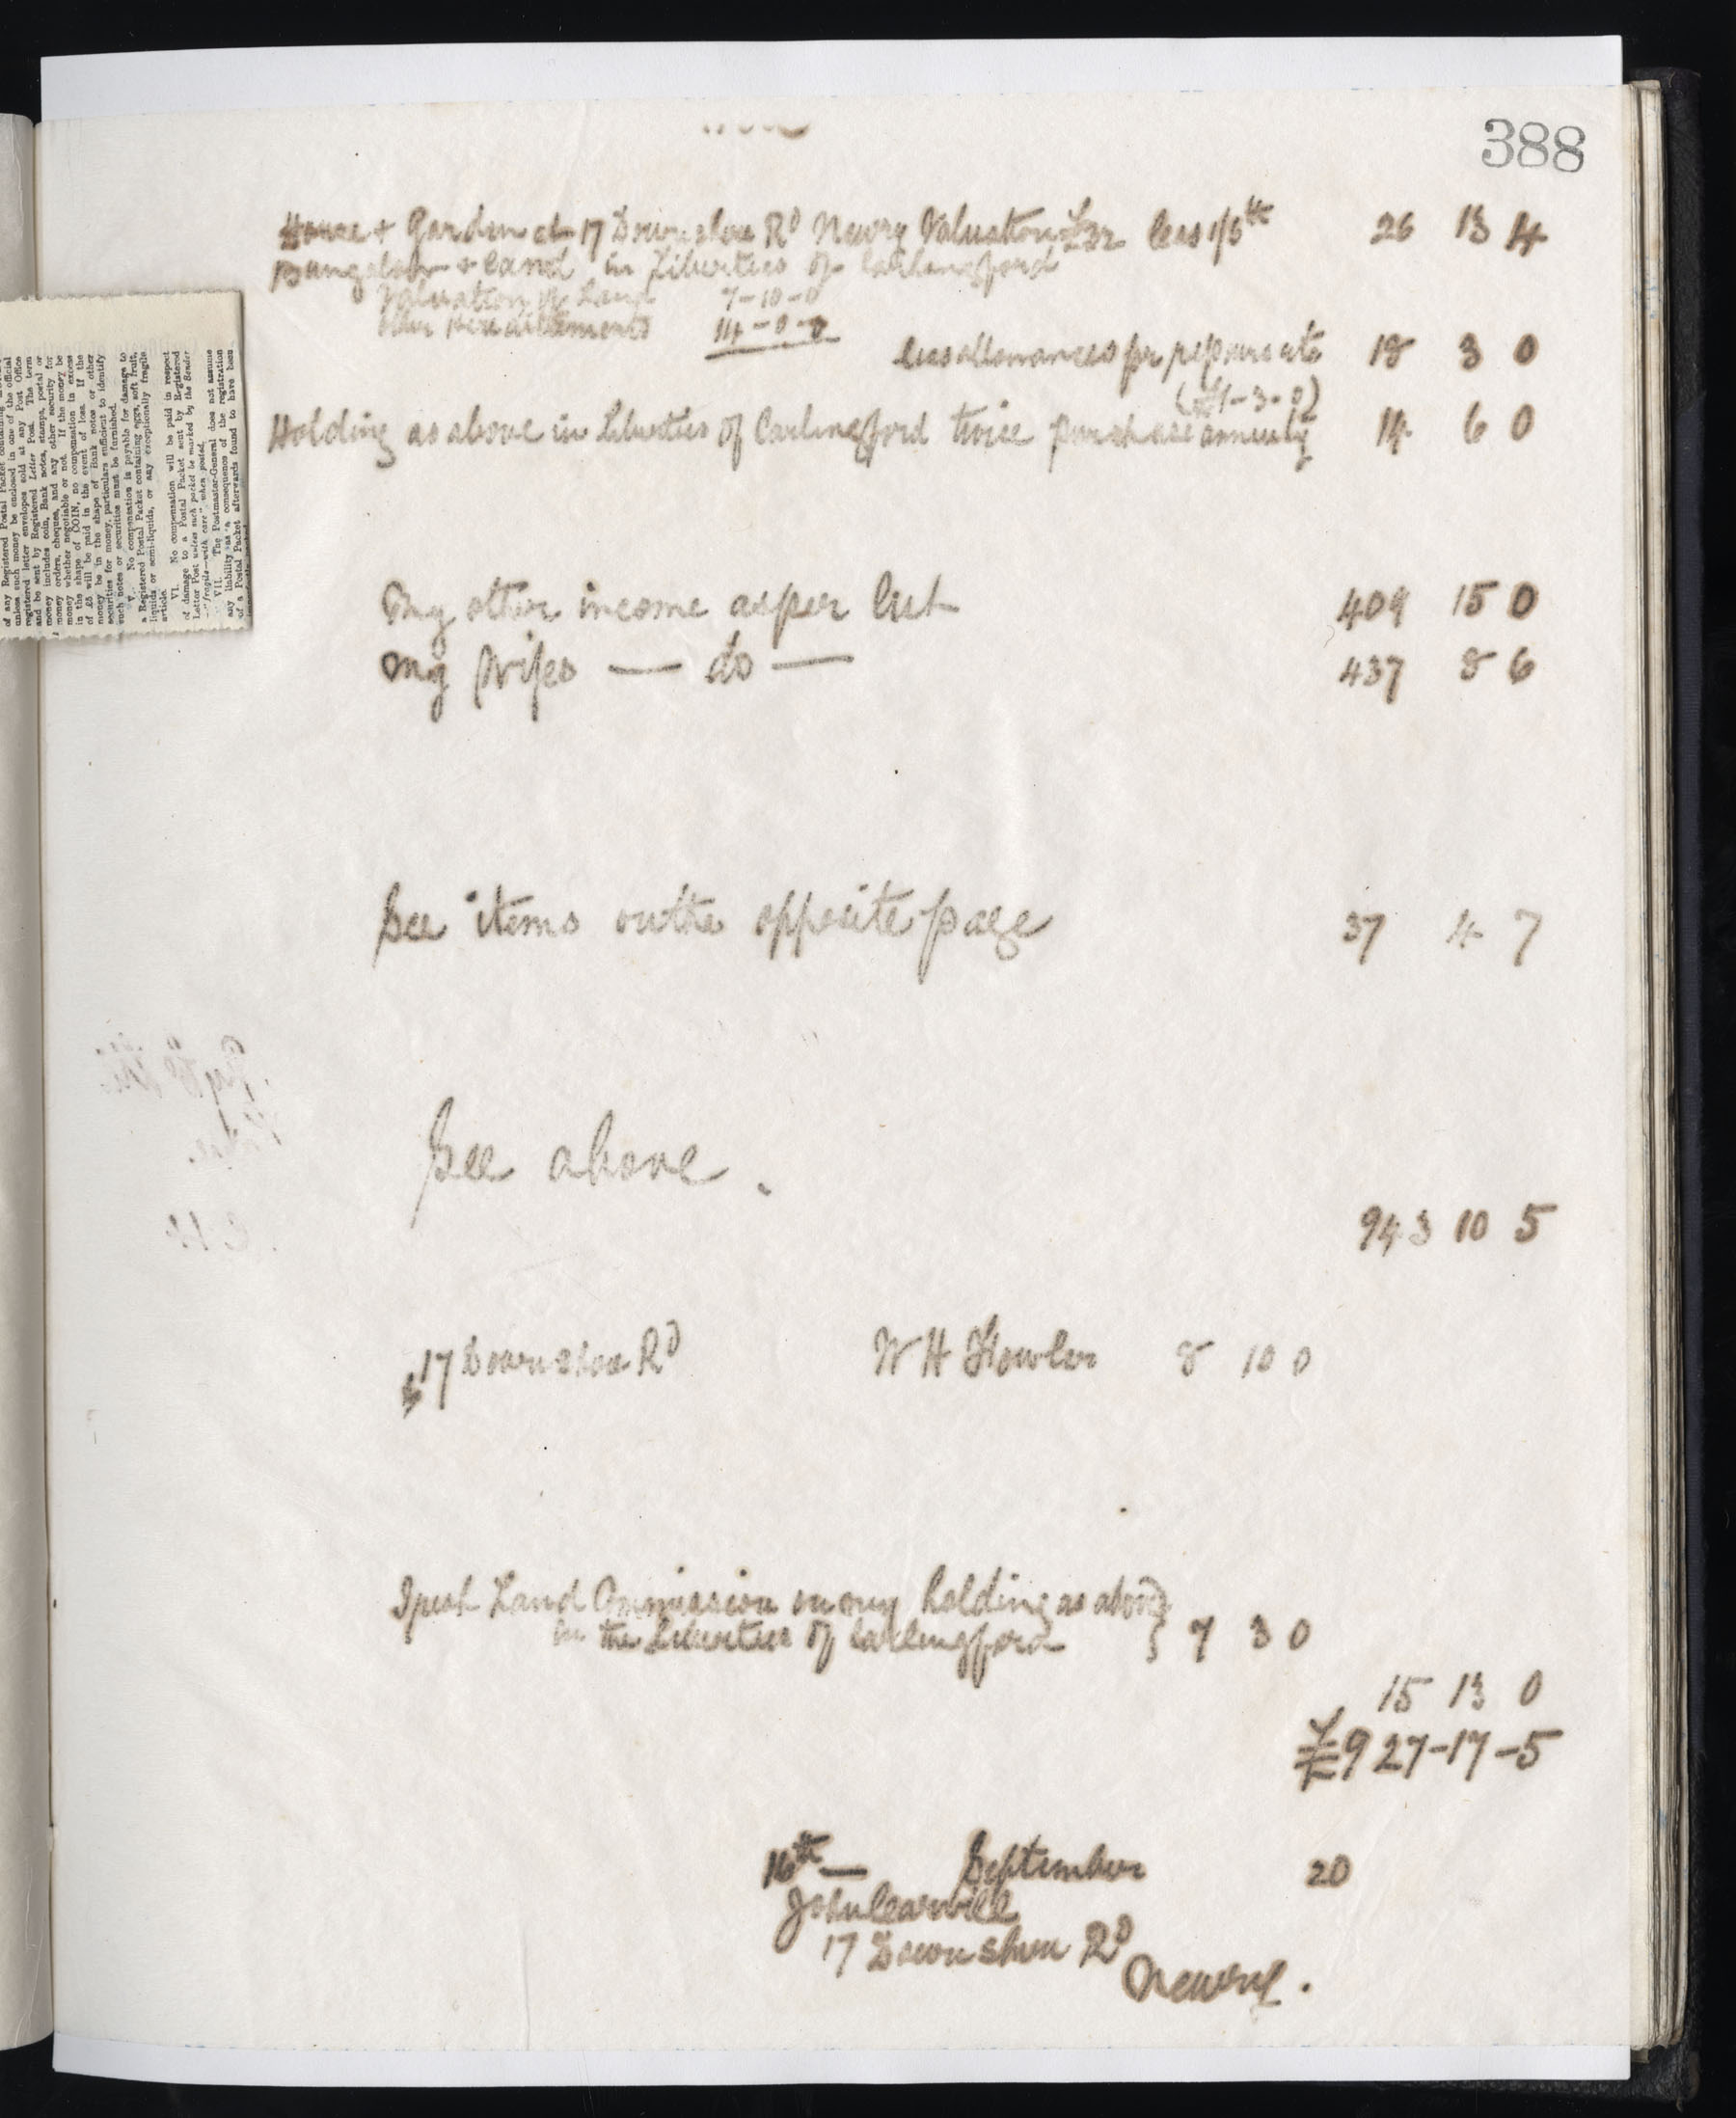 388
House + Garden at 17 Downshire Rd Newry Valuation £32 less 1/6th 26 13 4
Bungalow + land in Liberties of Carlingford
Valuation of Land 7-10-0
Other Hereditaments 14-0-0
less allowances for repairs etc 18 3 0
(£1-3-0)
Holding as above in Liberties of Carlingford twice purchase annuity 14 6 0
My other income as per list 409 15 0
My Wifes — do — 437 8 6
See items on the opposite page 37 4 7
See above.
943 10 5
17 Downshire Rd W H Fowler 8 10 0
Irish Land Commission on my holding as above
in the Liberties of Carlingford } 7 3 0
15 13 0
£927-17-5
16th — September 20
John Carvill
17 Downshire Rd
Newry.
of any Registered Postal Packet
unless such money be enclosed in one of the official
registered letter envelopes sold at any Post Office
and be sent by Registered Letter Post. The term
money includes coin, Bank notes, stamps, postal or
money orders, cheques, and any other security for
money whether negotiable or not. If the money be
in the shape of COIN, no compensation in excess
of £5 will be paid in the event of loss. If the
money be in the shape of Bank notes or other
securities for money, particulars sufficient to identify
such notes or securities must be furnished.
V. No compensation is payable for damage to
a Registered Postal Packet containing eggs, soft fruit,
liquids or semi-liquids, or any exceptionally fragile
article.
VI. No compensation will be paid in respect
of damage to a Postal Packet sent by Registered
Letter Post unless such packet be marked by the Sender
"fragile—with care" when posted.
VII. The Postmaster-General does not assume
any liability as a consequence of the registration
of a Postal Packet afterwards found to have been